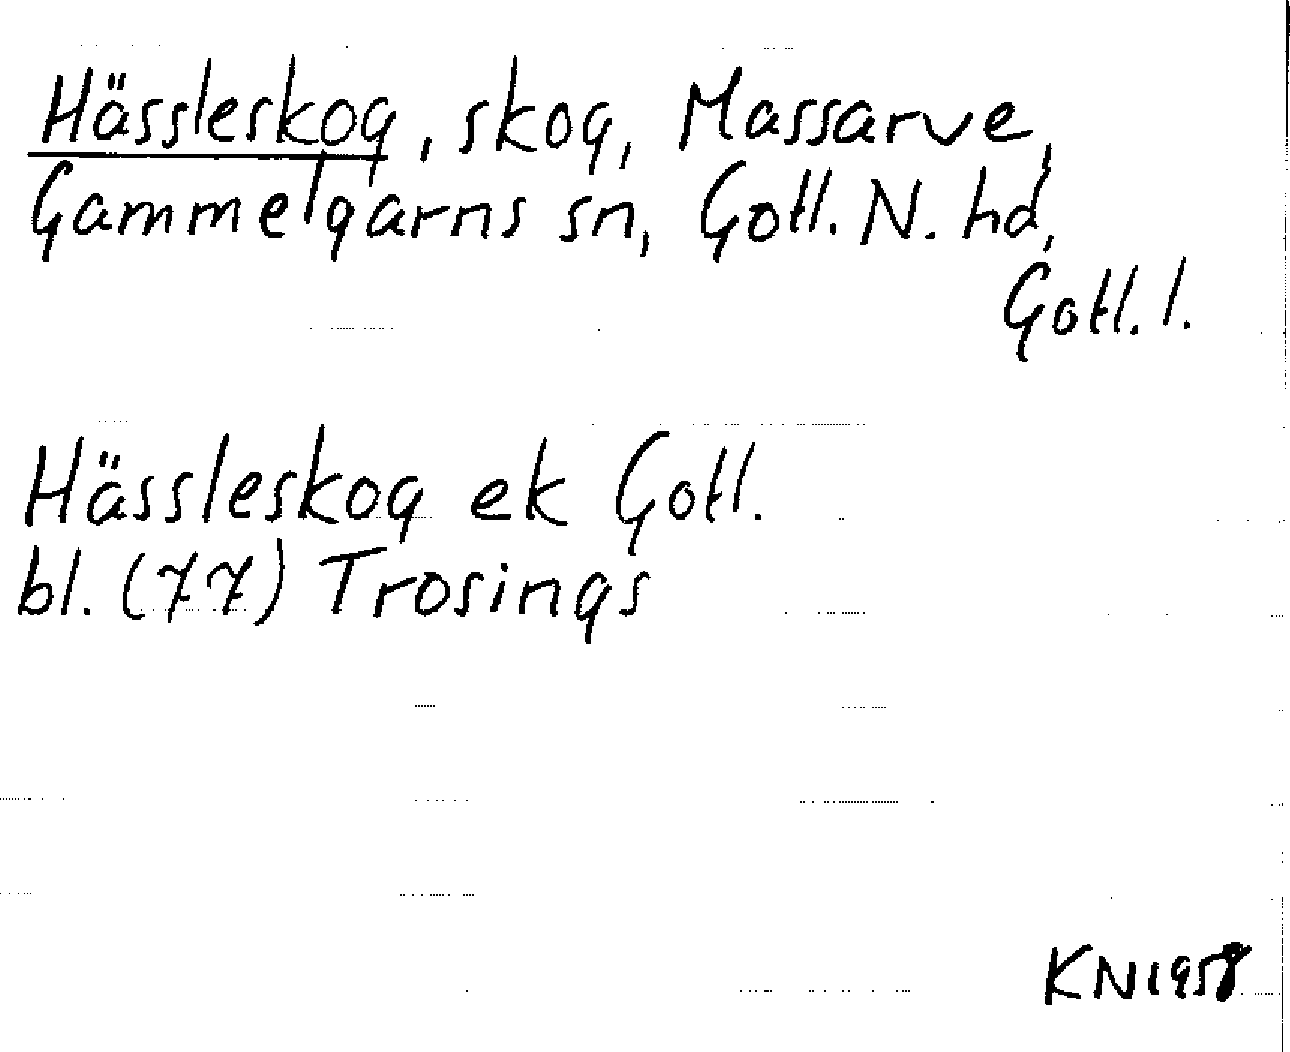 Hässleskog, skog, Massarve,
Gammelgarns sn, Gotl. N. hd,
Gotl. l.
Hässleskog ek Gotl.
bl. (77) Trosings
KN1958